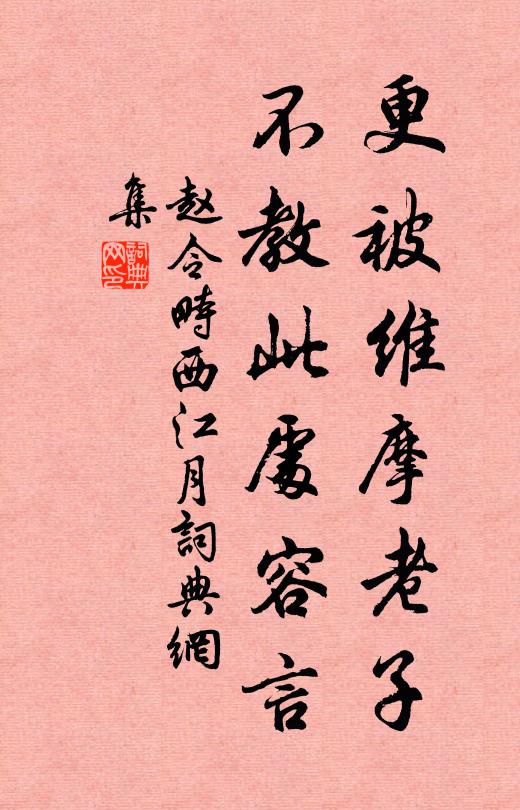 更被維摩老子
不教此處容言
赵令畤西江月詞典網
集
詞典
网印